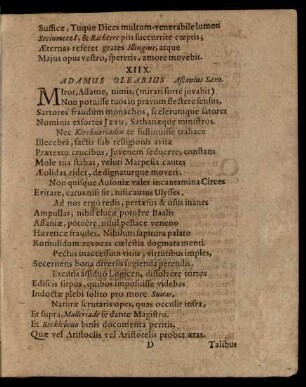 Suffice, Tuque Dices multum-venerabile lumen
Steinmetzî, & Richtere piis succurrite cœptis;
Æternas referet grates Illingius, atque
Majus opus vestro, speretis, amore movebit.
XIIX.
ADAMUS OLEARIUS Ascaniâ Saxo.
MIror, Adame, nimis, (mirari forte juvabit)
Non potuisse tuos in pravum flectere sensus,
Sartores fraudum monachos, scelerumque satores
Nominis exortes JESU, Sathanæque ministros.
Nec Kirchneriadem te sustinuisse trahace
Illecebrâ, factis sub relligionis avitæ
Prætextu crucibus, juvenem seducere, constans
Mole tua stabas, veluti Marpesia cautes
Æolidas ridet, dedignaturque moveri.
Non quisque Ausoniæ valet incantamina Circes
Evitare, catus nisi sit, nisi cautus Ulysses.
Ad nos ergo redis, pertæsus & osus inanes
Ampullas, nihil escæ potuêre Baalis
Assaniæ, potuêre nihil pellace veneno
Hareticæ fraudes. Nihilum sapitura palato
Romulidum revocas cœlestia dogmata menti.
Pectus inaccessum vitiis, virtutibus imples,
Secernens bona diversis fugienda petendis,
Excultâ assiduò Logicen, dissolvere tortos
Ediscis sirpos, quibus imposuisse videbas
Indoctæ plebi solito pro more Suitas,
Naturæ scrutaris opes, quas occulit infra,
Et supra, Mulleriade se dante Magistro.
Et Kecklebius binis documenta peritis,
Quæ vel Aristoclis vel Aristotelis probet ætas.
D Talibus